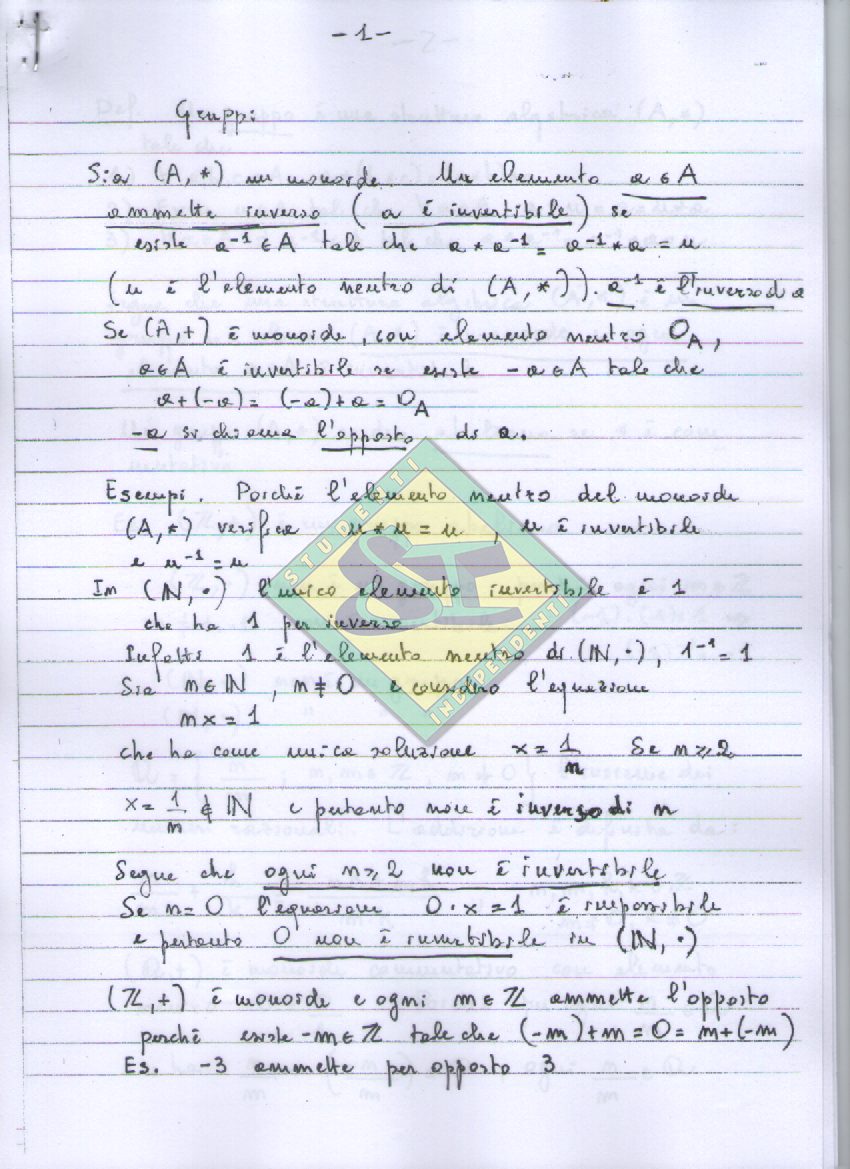 - 1 -
Gruppi
Sia (A, *) un monoide. Un elemento a ∈ A
ammette inverso (a è invertibile) se
esiste a⁻¹ ∈ A tale che a * a⁻¹ = a⁻¹ * a = u
(u è l'elemento neutro di (A, *)). a⁻¹ è l'inverso di a
Se (A, +) è monoide, con elemento neutro 0_A,
a ∈ A è invertibile se esiste -a ∈ A tale che
a + (-a) = (-a) + a = 0_A
-a si chiama l'opposto di a.
Esempi. Poiché l'elemento neutro del monoide
(A, *) verifica u * u = u, u è invertibile
e u⁻¹ = u
In (ℕ, ·) l'unico elemento invertibile è 1
che ha 1 per inverso
Infatti 1 è l'elemento neutro di (ℕ, ·), 1⁻¹ = 1
Sia n ∈ ℕ, n ≠ 0 e considero l'equazione
n x = 1
che ha come unica soluzione x = 1/n Se n ≥ 2
x = 1/n ∉ ℕ e pertanto non è inverso di n
Segue che ogni n ≥ 2 non è invertibile
Se n = 0 l'equazione 0 · x = 1 è impossibile
e pertanto 0 non è invertibile in (ℕ, ·)
(ℤ, +) è monoide e ogni m ∈ ℤ ammette l'opposto
perché esiste -m ∈ ℤ tale che (-m) + m = 0 = m + (-m)
Es. -3 ammette per opposto 3
STUDENTI
INDIPENDENTI